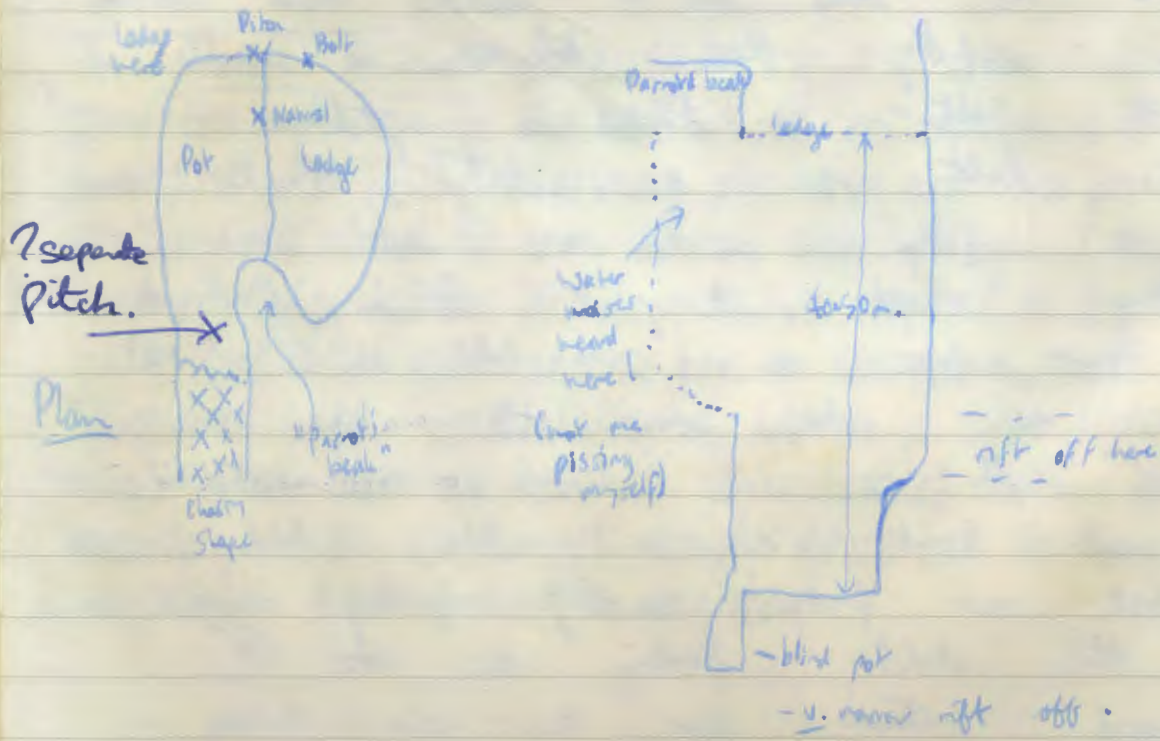 Ledge
here
Piton
Bolt
Natural
Pot
Ledge
? separate
pitch.
Plan
"Parrot's
beak"
chasm
shape
Parrots beak
ledge
Water
noises
heard
here!
(not me
pissing
myself)
rift off here
- blind pot
- v. narrow rift off.